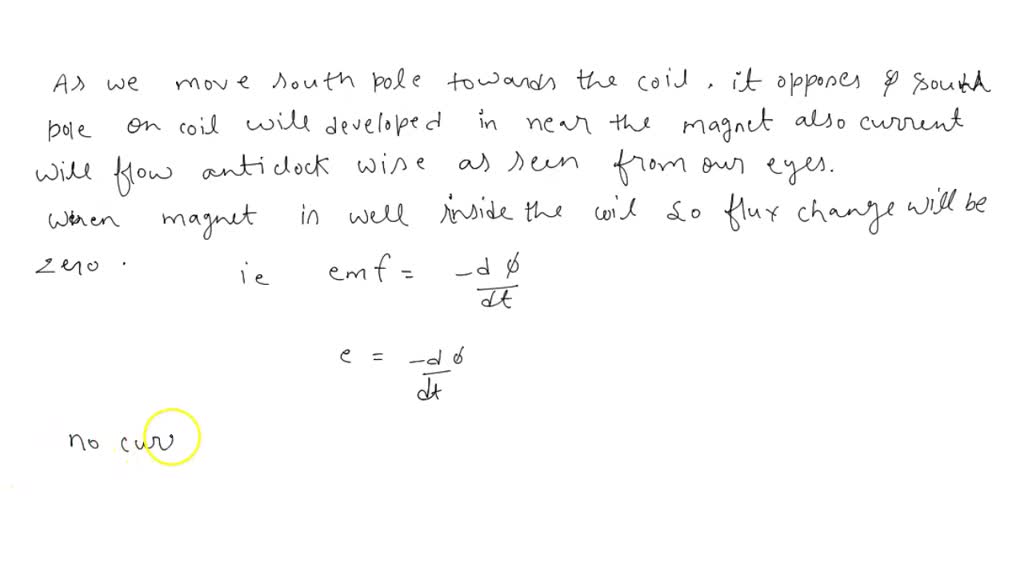 As we move south pole towards the coil, it opposes & south
pole on coil will developed in near the magnet also current
will flow anticlock wise as seen from our eyes.
when magnet is well inside the coil so flux change will be
zero.
ie emf = -dϕ/dt
e = -dϕ/dt
no cur